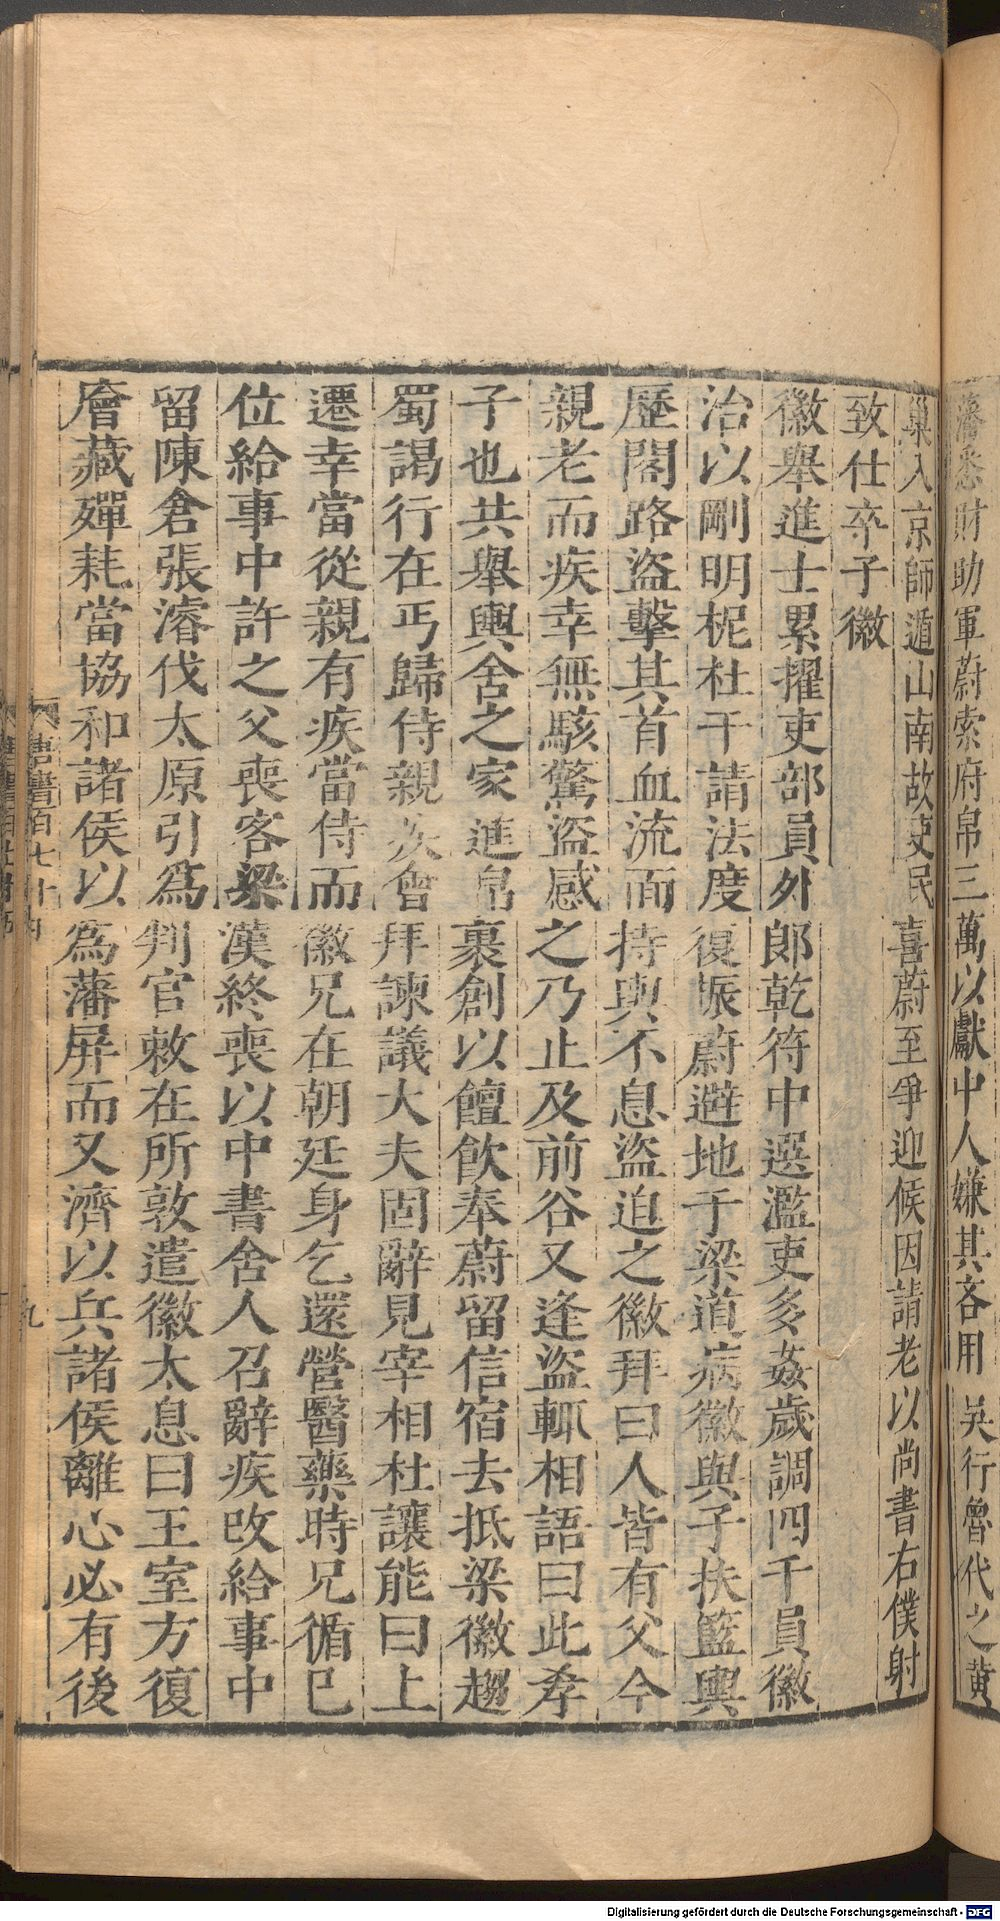 藩悉財助軍蔚索府帛三萬以獻中人嫌其吝用吳行魯代之黄
巢入京師遁山南故吏民喜蔚至爭迎候因請老以尚書右僕射
致仕卒子徽
徽舉進士累擢吏部員外郎乾符中選濫吏多姦歲調四千員徽
治以剛明柅杜干請法度復振蔚避地于梁道病徽與子扶籃輿
歷閣路盜擊其首血流面持輿不息盜迫之徽拜曰人皆有父今
親老而疾幸無駭驚盜感之乃止及前谷又逢盜輒相語曰此孝
子也共舉輿舍之家進帛裹創以饘飲奉蔚留信宿去抵梁徽趨
蜀謁行在丐歸侍親疾會拜諫議大夫固辭見宰相杜讓能曰上
遷幸當從親有疾當侍而徽兄在朝廷身乞還營醫藥時兄循已
位給事中許之父喪客梁漢終喪以中書舍人召辭疾改給事中
留陳倉張濬伐太原引爲判官敕在所敦遣徽太息曰王室方復
廥藏殫耗當協和諸侯以爲藩屏而又濟以兵諸侯離心必有後
唐書百七十四
九
Digitalisierung gefördert durch die Deutsche Forschungsgemeinschaft - DFG